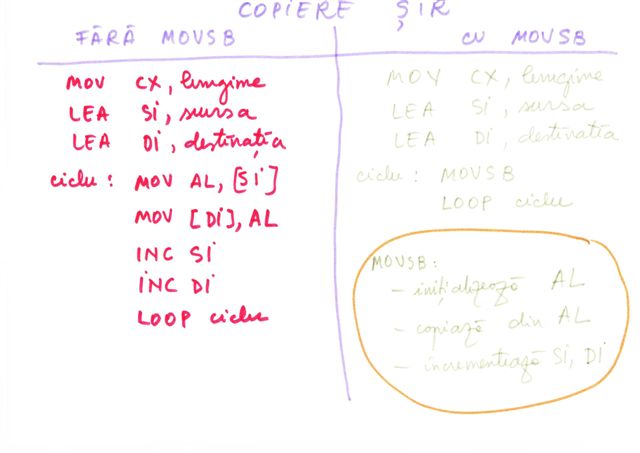 COPIERE ŞIR
FĂRĂ MOVSB
MOV CX, lungime
LEA SI, sursa
LEA DI, destinaţia
ciclu: MOV AL, [SI]
MOV [DI], AL
INC SI
INC DI
LOOP ciclu
CU MOVSB
MOV CX, lungime
LEA SI, sursa
LEA DI, destinatia
ciclu: MOVSB
LOOP ciclu
MOVSB:
- iniţializează AL
- copiază din AL
- incrementează SI, DI